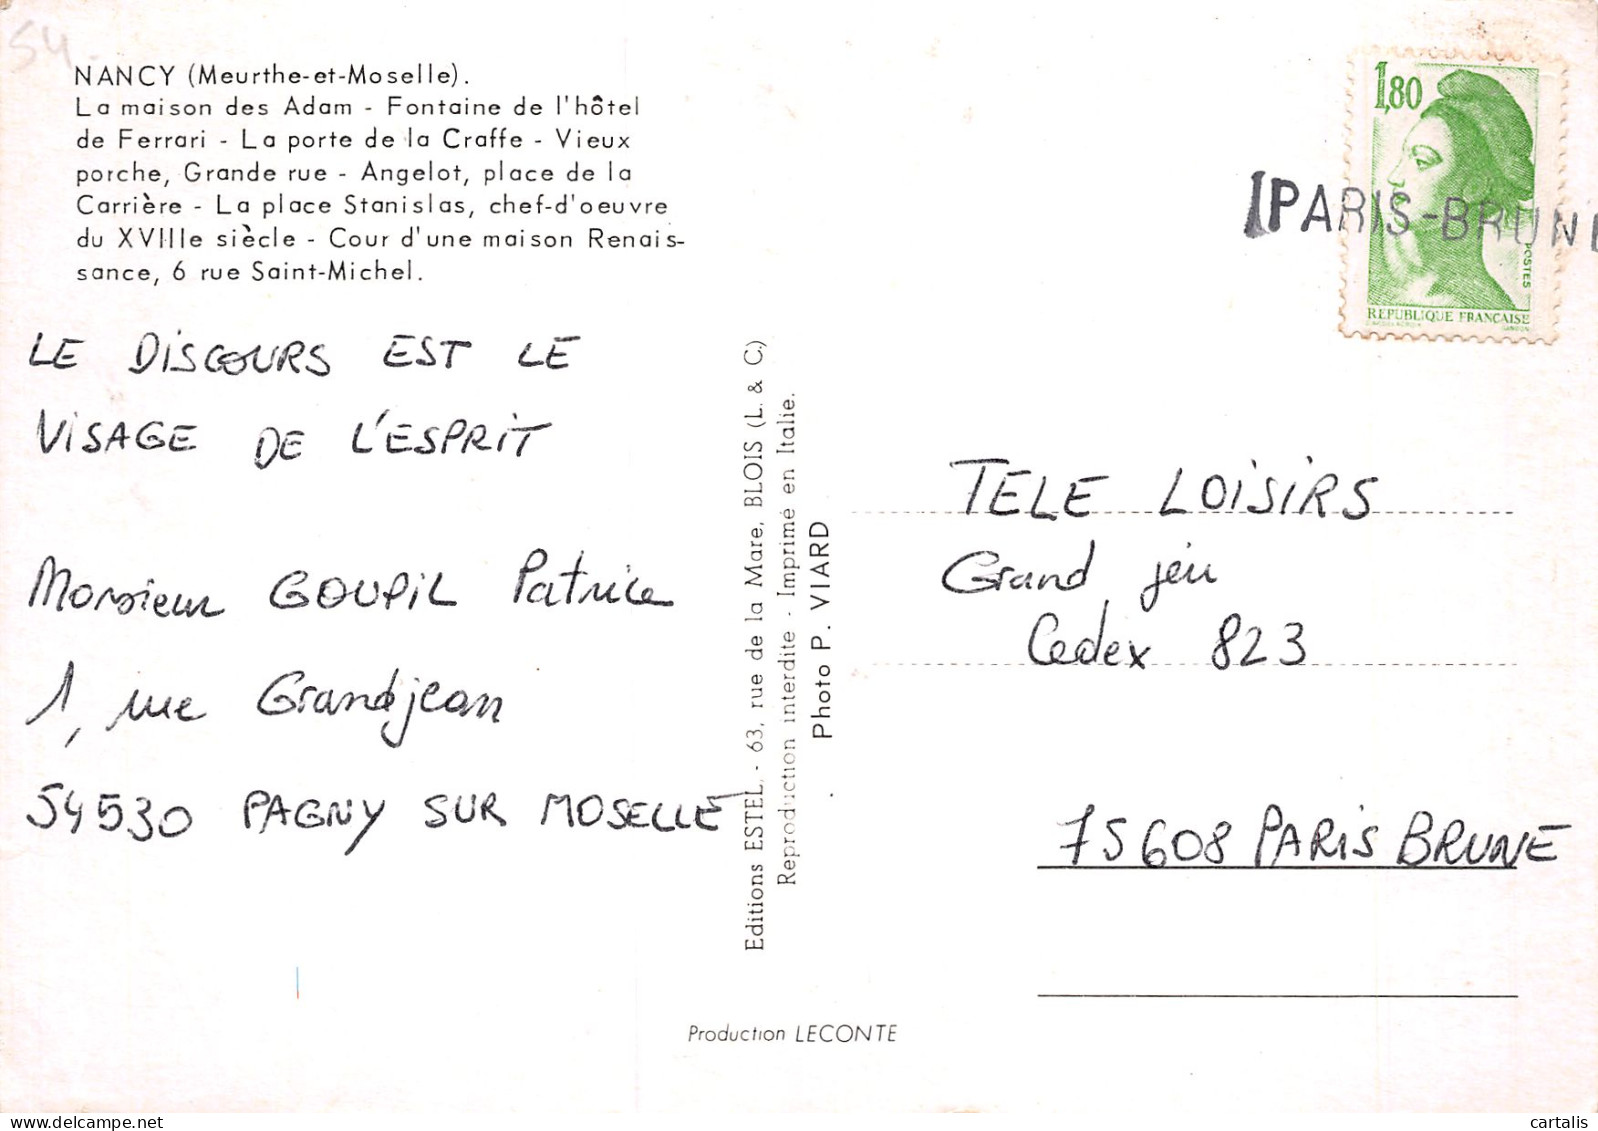 54.
NANCY (Meurthe-et-Moselle).
La maison des Adam - Fontaine de l'hôtel
de Ferrari - La porte de la Craffe - Vieux
porche, Grande rue - Angelot, place de la
Carrière - La place Stanislas, chef-d'oeuvre
du XVIIIe siècle - Cour d'une maison Renais-
sance, 6 rue Saint-Michel.
LE DISCOURS EST LE
VISAGE DE L'ESPRIT
Monsieur GOUPIL Patrice
1, rue Grandjean
54530 PAGNY SUR MOSELLE
Editions ESTEL. - 63, rue de la Mare, BLOIS (L. & C.)
Reproduction interdite - Imprimé en Italie.
Photo P. VIARD
Production LECONTE
1,80
POSTES
REPUBLIQUE FRANÇAISE
GANDON
PARIS-BRUNE
TELE LOISIRS
Grand jeu
Cedex 823
75608 PARIS BRUNE
cartalis